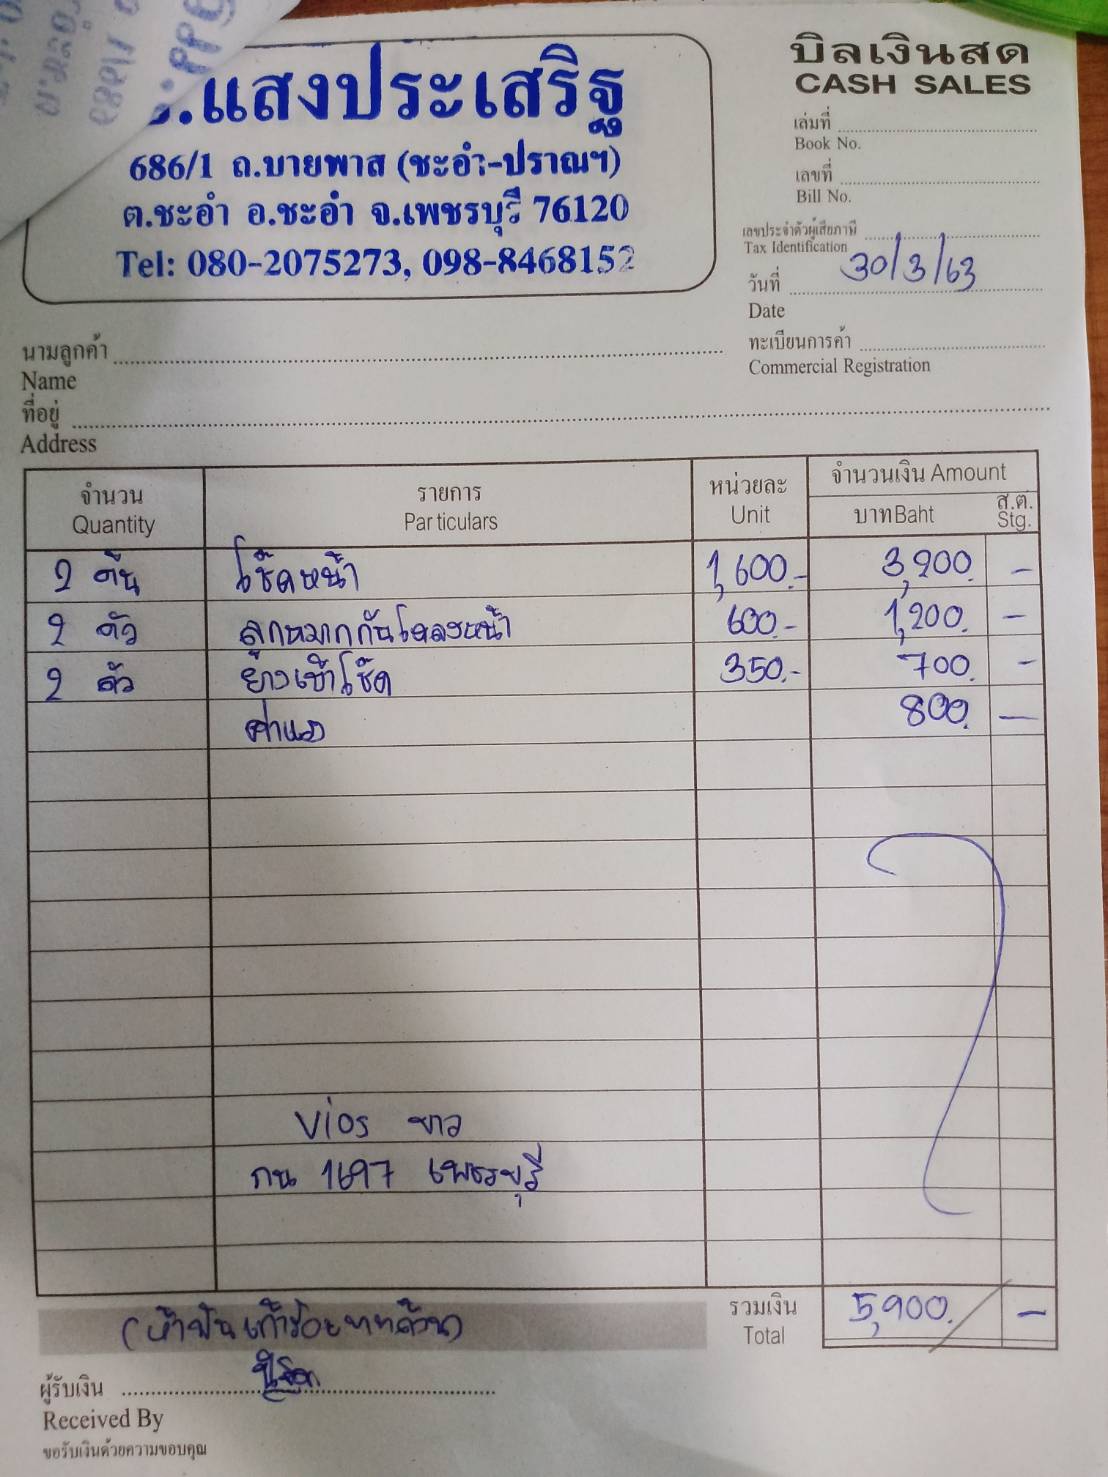 .แสงประเสริฐ
686/1 ถ.บายพาส (ชะอำ-ปราณฯ)
ต.ชะอำ อ.ชะอำ จ.เพชรบุรี 76120
Tel: 080-2075273, 098-8468152
บิลเงินสด
CASH SALES
เล่มที่
Book No.
เลขที่
Bill No.
เลขประจำตัวผู้เสียภาษี
Tax Identification
วันที่ 30/3/63
Date
ทะเบียนการค้า
Commercial Registration
นามลูกค้า
Name
ที่อยู่
Address
จำนวน รายการ หน่วยละ จำนวนเงิน Amount
Quantity Particulars Unit บาท Baht ส.ต. Stg.
2 ต้น โช๊คหน้า 1,600.- 3,200. -
2 ตัว ลูกหมากกันโคลงหน้า 600.- 1,200. -
2 ตัว ยางเบ้าโช๊ค 350.- 700. -
ค่าแรง 800. -
Vios ขาว
กน 1697 เพชรบุรี
(ห้าพันเก้าร้อยบาทถ้วน) รวมเงิน 5,900. -
Total
ผู้รับเงิน
Received By
ขอรับเงินด้วยความขอบคุณ